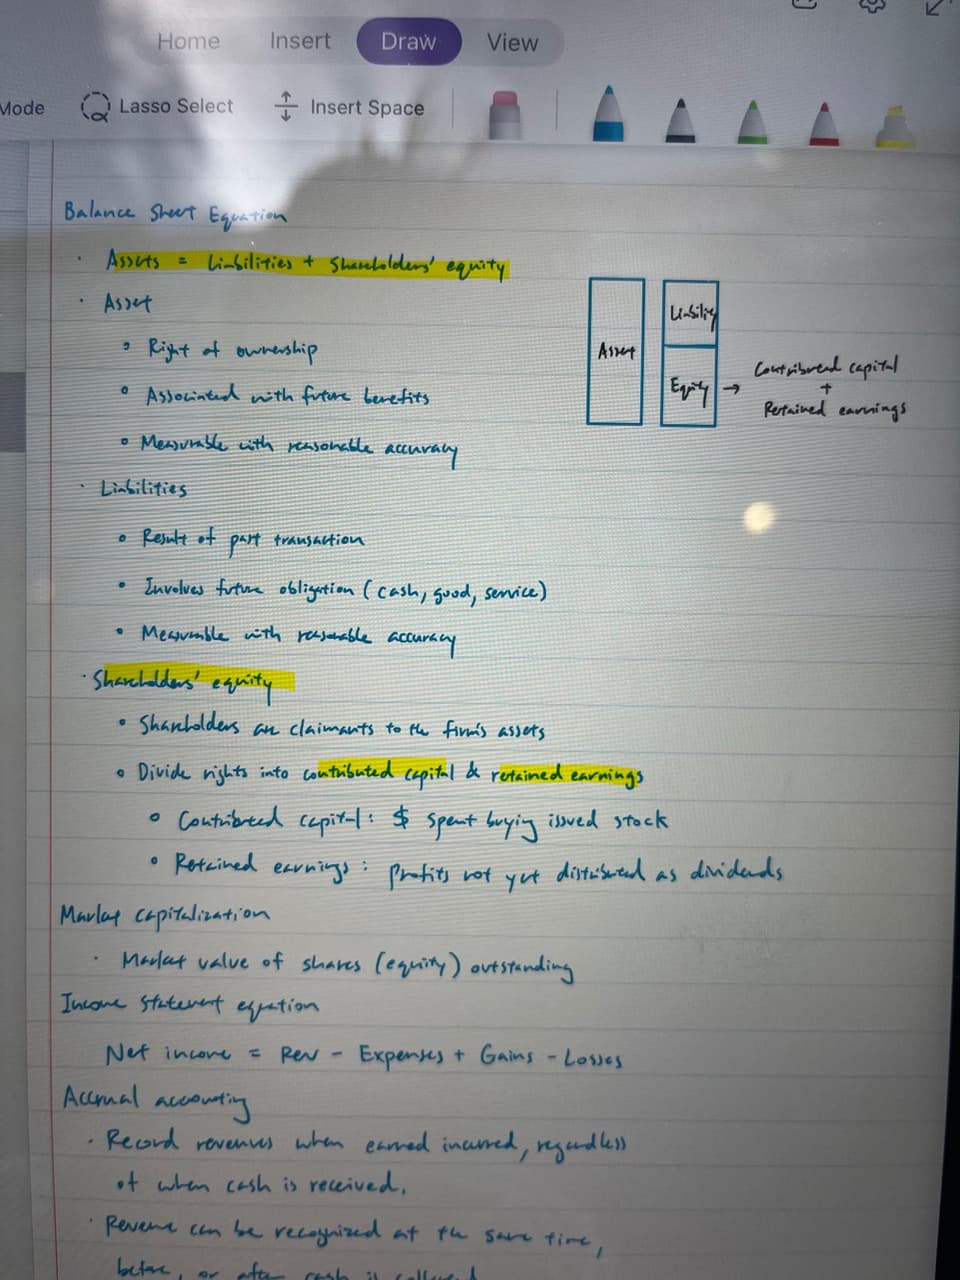 Home Insert Draw View
Mode Lasso Select Insert Space
Balance Sheet Equation
· Assets = Liabilities + Shareholders' equity
· Asset
◦ Right of ownership
◦ Associated with future benefits
◦ Measurable with reasonable accuracy
Asset
Liability
Equity → Contributed capital
+
Retained earnings
· Liabilities
◦ Result of past transaction
◦ Involves future obligation (cash, good, service)
◦ Measurable with reasonable accuracy
· Shareholders' equity
◦ Shareholders are claimants to the firm's assets
◦ Divide rights into contributed capital & retained earnings
◦ Contributed capital: $ spent buying issued stock
◦ Retained earnings: profits not yet distributed as dividends
Market capitalization
· Market value of shares (equity) outstanding
Income statement equation
Net income = Rev - Expenses + Gains - Losses
Accrual accounting
· Record revenues when earned incurred, regardless
of when cash is received.
· Revenue can be recognized at the same time,
before, or after cash is collected